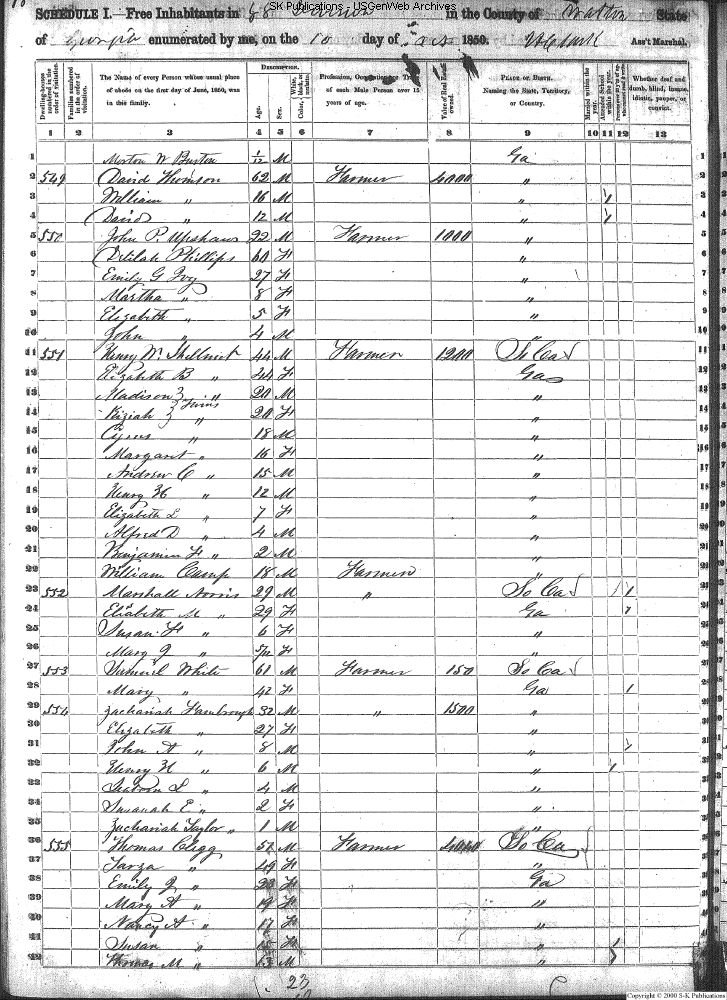 SK Publications - USGenWeb Archives
SCHEDULE I.—Free Inhabitants in 68 Division in the County of Walton State
of Georgia enumerated by me, on the 10 day of Oct 1850. Ass't Marshal.
Dwelling-houses numbered in the order of visitation.
Families numbered in the order of visitation.
The Name of every Person whose usual place of abode on the first day of June, 1850, was in this family.
Description.
Age.
Sex.
White, black, or mulatto. Color,
Profession, Occupation, or Trade of each Male Person over 15 years of age.
Value of Real Estate owned.
Place of Birth. Naming the State, Territory, or Country.
Married within the year.
Attended School within the year.
Whether deaf and dumb, blind, insane, idiotic, pauper, or convict.
1 2 3 4 5 6 7 8 9 10 11 12 13
1 Morton W Burton 1/12 M Ga
2 549 David Thomson 62 M Farmer 4000 "
3 William " 16 M " 1
4 David " 12 M " 1
5 550 John P. Upshaw 22 M Farmer 1000 "
6 Delilah Phillips 60 F "
7 Emily G Ivy 27 F "
8 Martha " 8 F "
9 Elizabeth " 5 F "
10 John " 4 M "
11 551 Henry W. Shellnut 44 M Farmer 1200 So Ca
12 Elizabeth B " 44 F Ga
13 Madison " 20 M "
Twins
14 Kiziah " 20 F "
15 Cyrus " 18 M "
16 Margaret " 16 F "
17 Andrew C " 15 M "
18 Henry H " 12 M "
19 Elizabeth L " 7 F "
20 Alfred D " 4 M "
21 Benjamin F " 2 M "
22 William Camp 18 M Farmer "
23 552 Marshall Norris 29 M " So Ca 1 1
24 Eliabeth M " 29 F Ga 1
25 Susan F " 6 F "
26 Mary J " 5/12 F "
27 553 Samuel White 61 M Farmer 150 So Ca
28 Mary " 42 F Ga 1
29 554 Zachariah Hambrough 32 M " 1500 "
30 Elizabeth " 27 F "
31 John A " 8 M " 1
32 Henry H " 6 M " 1
33 L " 4 M "
34 Susanah E " 2 F "
35 Zachariah Taylor " 1 M "
36 555 Thomas Clegg 57 M Farmer So Ca
37 Tarza " 49 F "
38 Emily J " 23 F Ga
39 Mary A " 19 F "
40 Nancy A " 17 F "
41 Susan " 15 F " 1
42 Thomas M " 13 M " 1
23
Copyright © 2000 S-K Publications